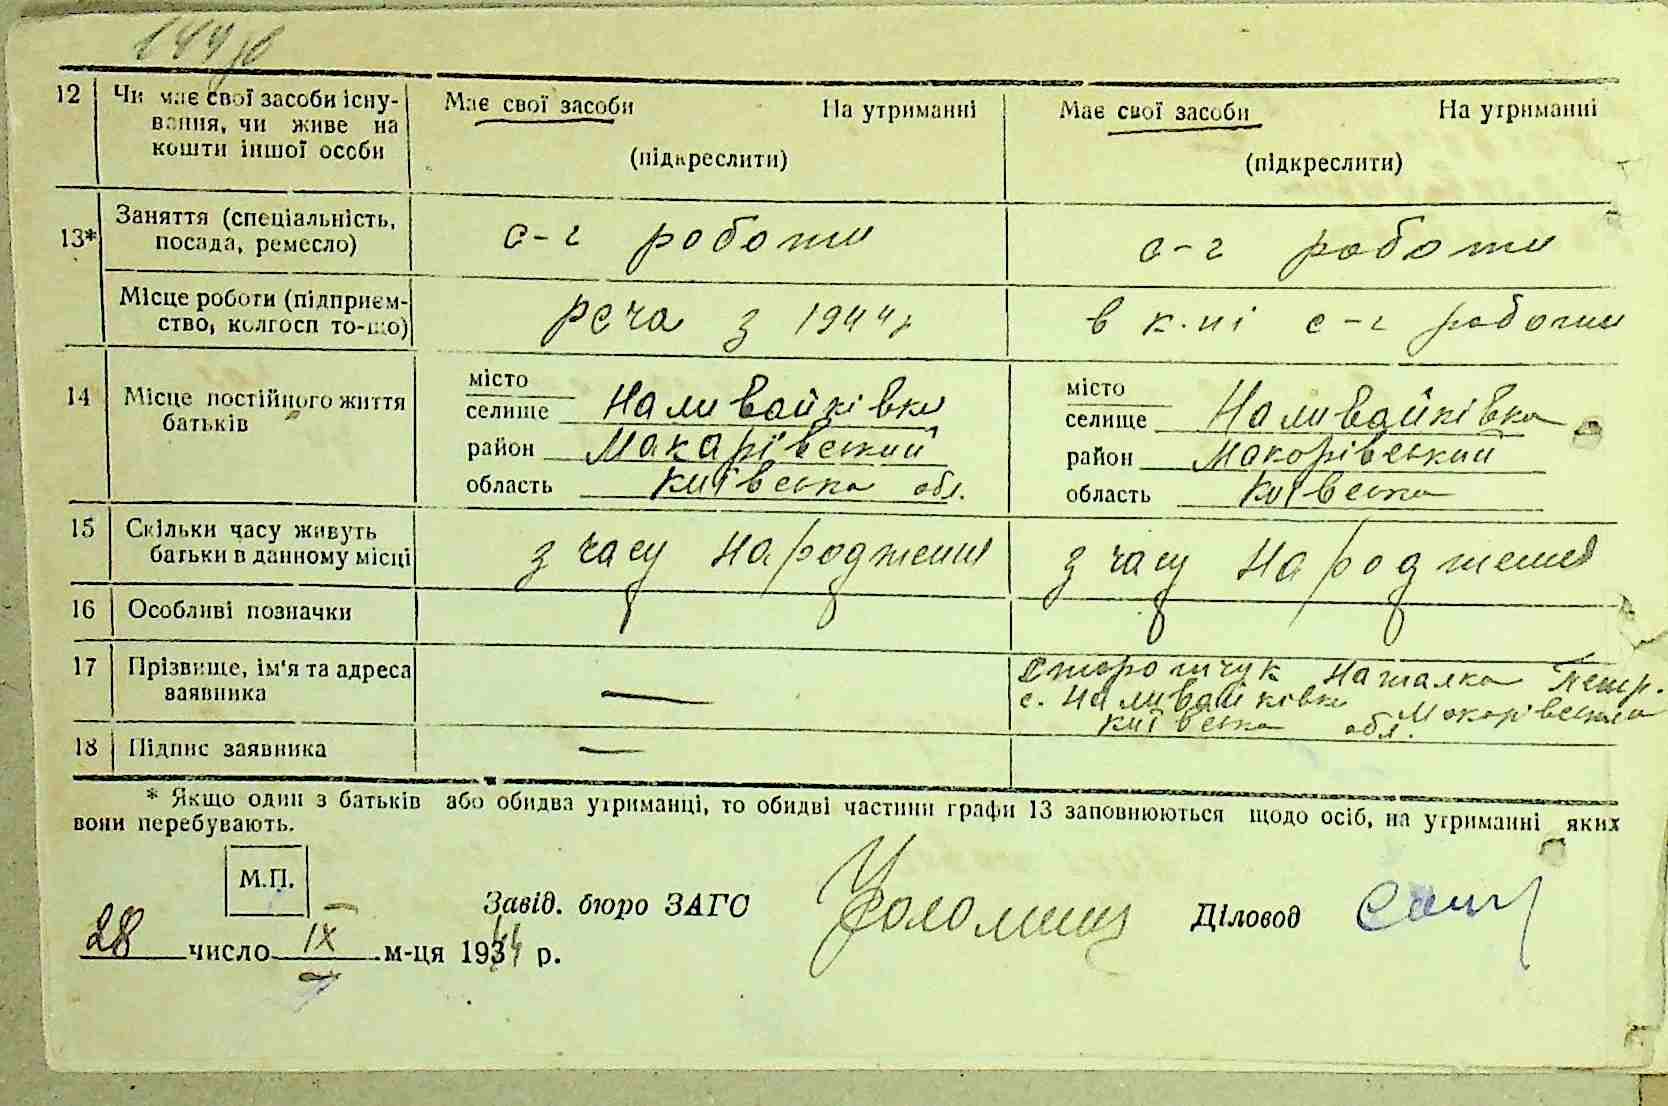 12 Чи має свої засоби існу- Має свої засоби На утриманні Має свої засоби На утриманні
вання, чи живе на
кошти іншої особи (підкреслити) (підкреслити)
13* Заняття (спеціальність, с-г роботи с-г роботи
посада, ремесло)
Місце роботи (підприєм- з 1944 р в к-ні с-г роботи
ство, колгосп то-що)
14 Місце постійного життя місто місто
батьків селище Наливайківка селище Наливайківка
район Макарівський район Макорівський
область Київська обл. область Київська
15 Скільки часу живуть з часу народження з часу народження
батьки в данному місці
16 Особливі позначки
17 Прізвище, ім'я та адреса — Наталка Петр.
заявника с. Наливайківка Макарівського
Київська обл.
18 Підпис заявника —
* Якщо один з батьків або обидва утриманці, то обидві частини графи 13 заповнюються щодо осіб, на утриманні яких
вони перебувають.
М.П.
Завід. бюро ЗАГС Діловод
28 число IX м-ця 1944 р.